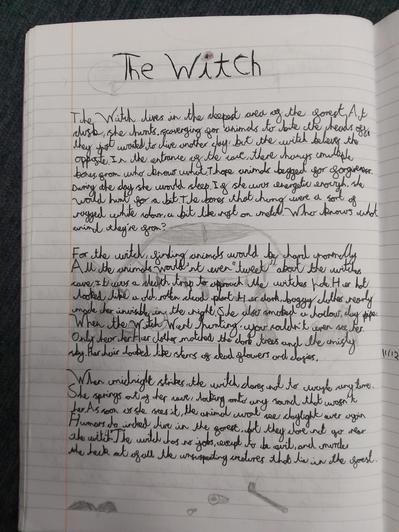 The Witch
The Witch lives in the deepest area of the forest. At
dusk, she hunts, scavenging for animals to bite the heads off.
they just wanted to live another day but the witch believes the
opposite. In the entrance of the cave, there hungs multiple
bones, from who knows what. Those animals begged for forgiveness.
During the day she would sleep. If she was energetic enough, she
would hunt for a bit. The bones that hung were a sort of
rugged white, a bit like rust on metal. Who knows what
animal they're from?
For the witch, finding animals would be hard normally.
All the animals would'nt even "tweet" about the witches
cave; it was a death trap to approach the witches. Her hat
looked like a old, rotten dead plant. Her dark, baggy clothes nearly
made her invisible in the night. She also smoked a hollow, clay pipe.
When the Witch Went hunting, you couldn't even see her.
Only hear her. Her clothes matched the dark trees and the misty
sky. Her hair looked like stems of dead flowers and dasies.
11/12
When midnight strikes, the witch dares not to waste any time.
She springs out of her cave, looking onto any sound that wasn't
her. As soon as she sees it, the animal wont see daylight ever again.
Humans do indeed live in the forest, but they dare not go near
the witch. The witch has no jobs, except to be evil, and murder
the heck out of all the unsuspecting creatures that lie in the forest.